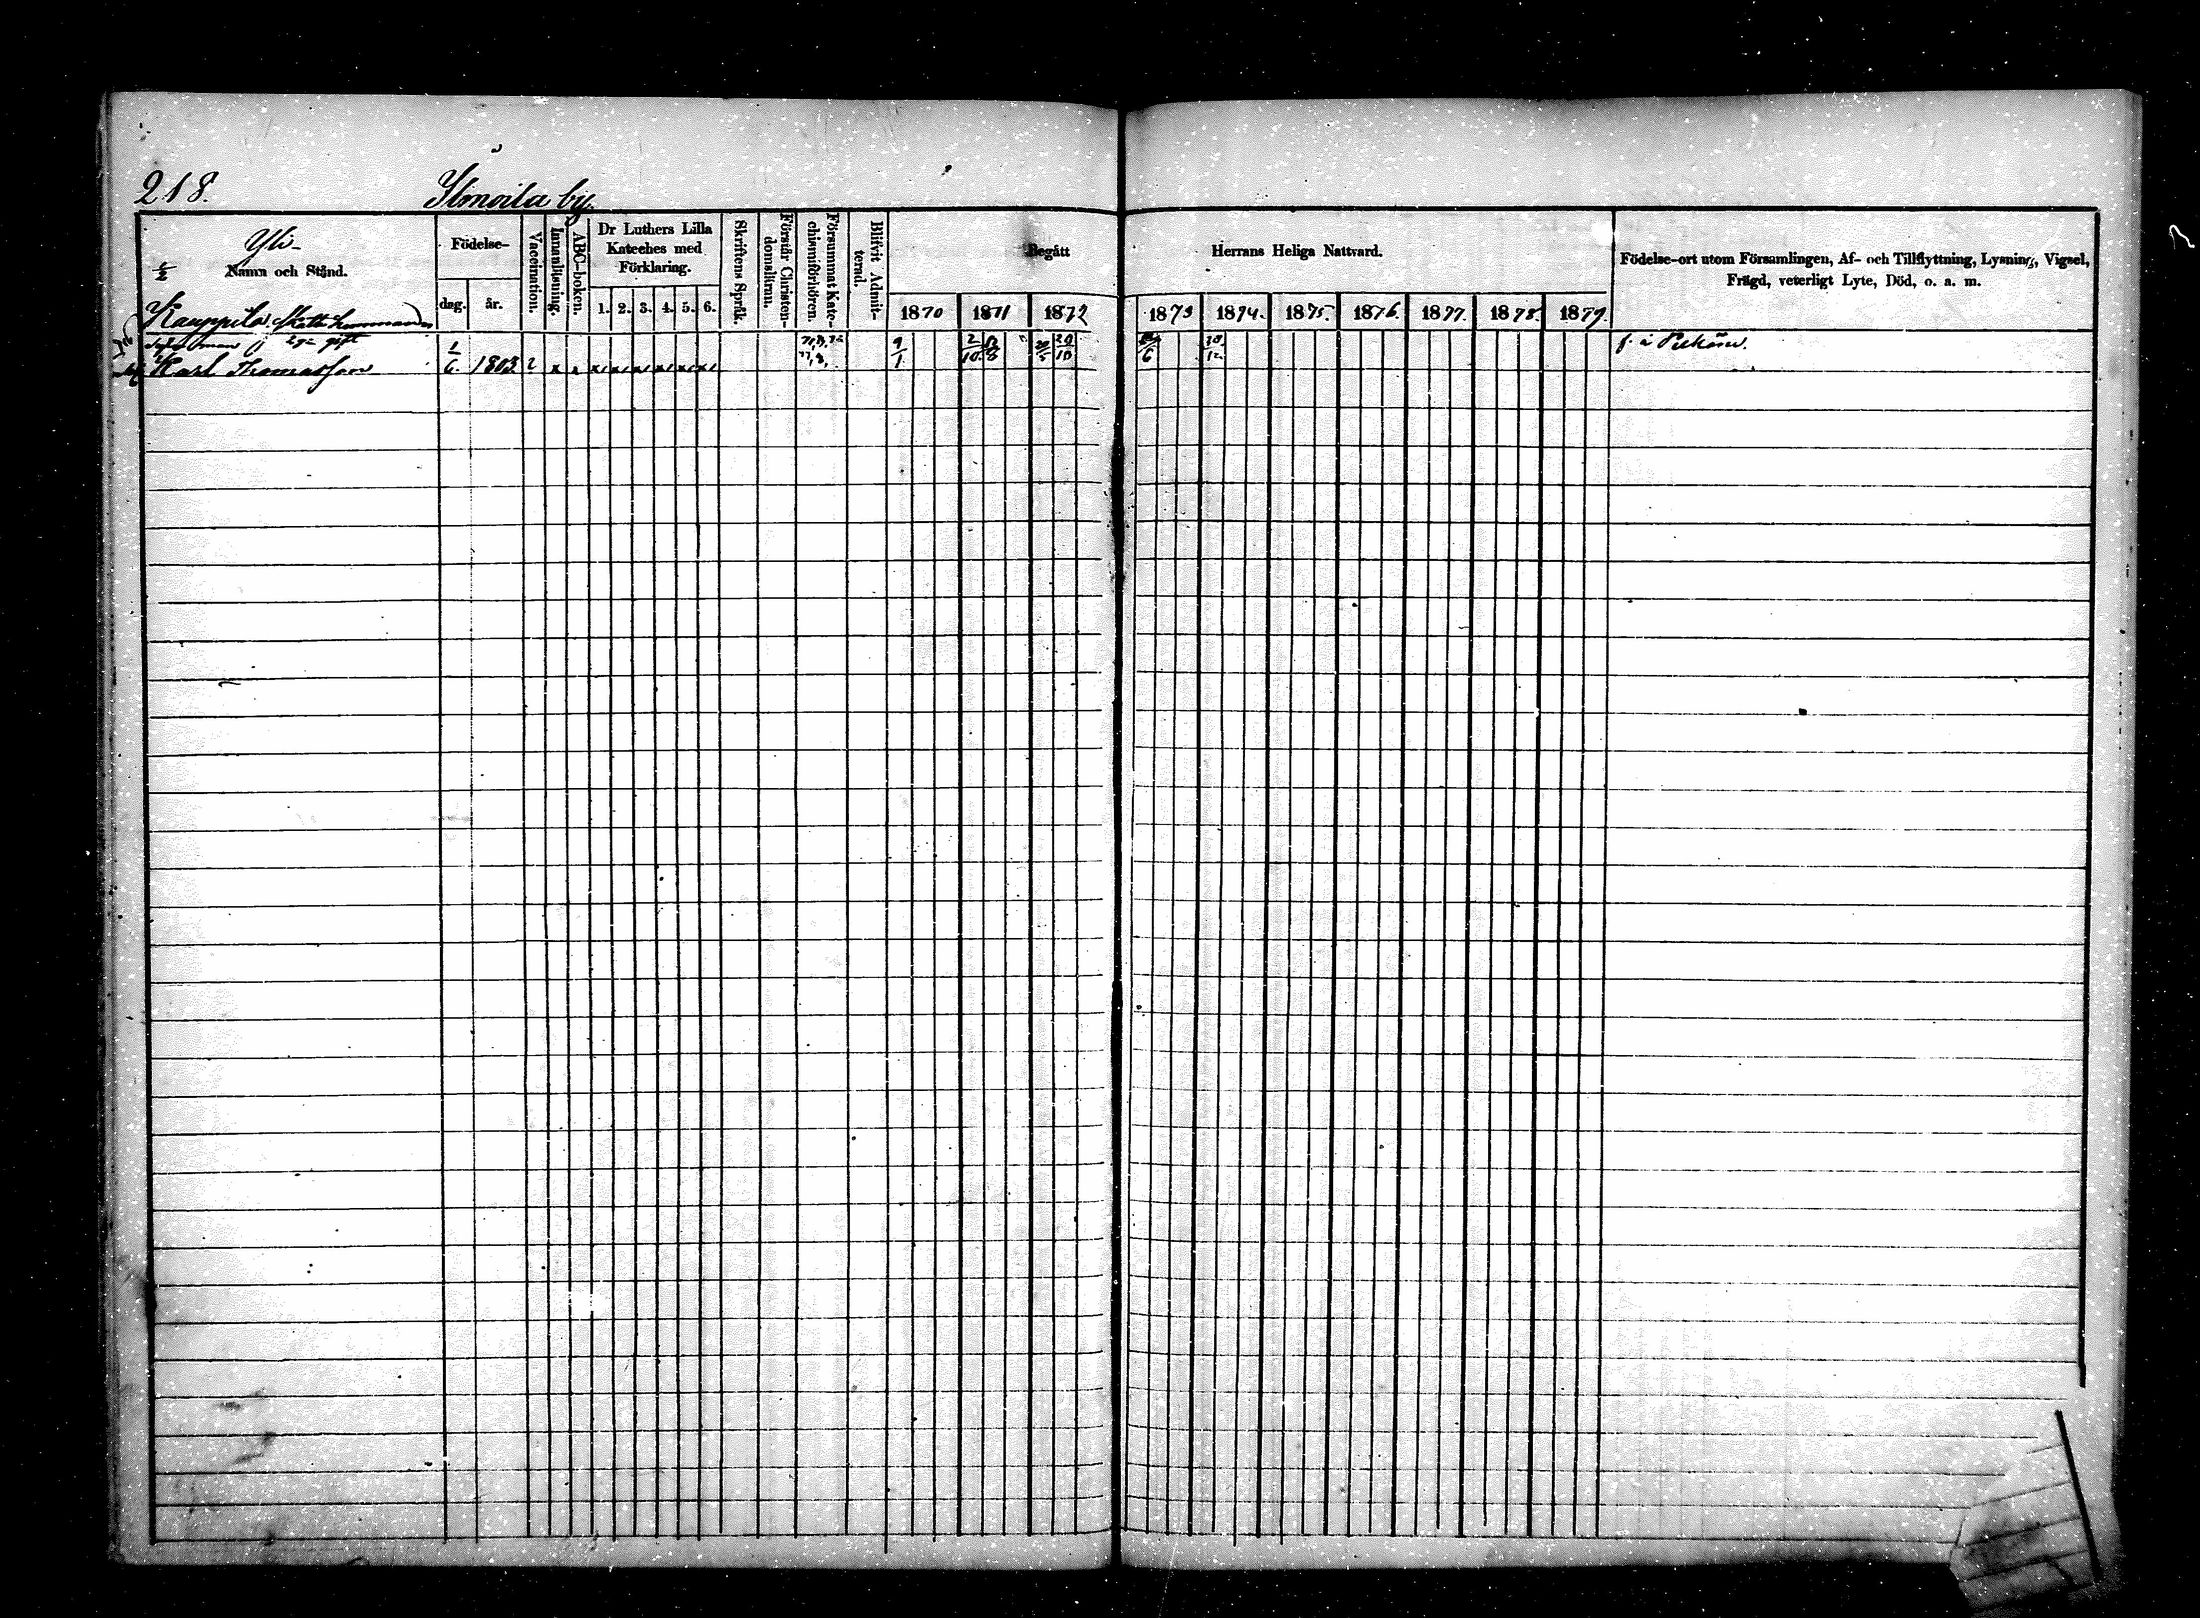 218.
Ilmoila by.
Yli-
Namn och Stånd.
Födelse-
dag. år.
Vaccination.
Innanläsning.
ABC-boken.
Dr Luthers Lilla
Kateches med
Förklaring.
1. 2. 3. 4. 5. 6.
Skriftens Språk.
Förstår Christen-
domskran.
Försummat Kate-
chismiförhören.
Blifvit Admit-
terad.
Begått Herrans Heliga Nattvard.
1870 1871 1872 1873 1874. 1875. 1876. 1877. 1878. 1879.
Födelse-ort utom Församlingen, Af- och Tillflyttning, Lysning, Vigsel,
Frägd, veterligt Lyte, Död, o. a. m.
Kauppila
2 ge gift
Karl Thomasson 1/6. 1803 2 x x x x x x x x
9/1 2/10 20/10 6 12